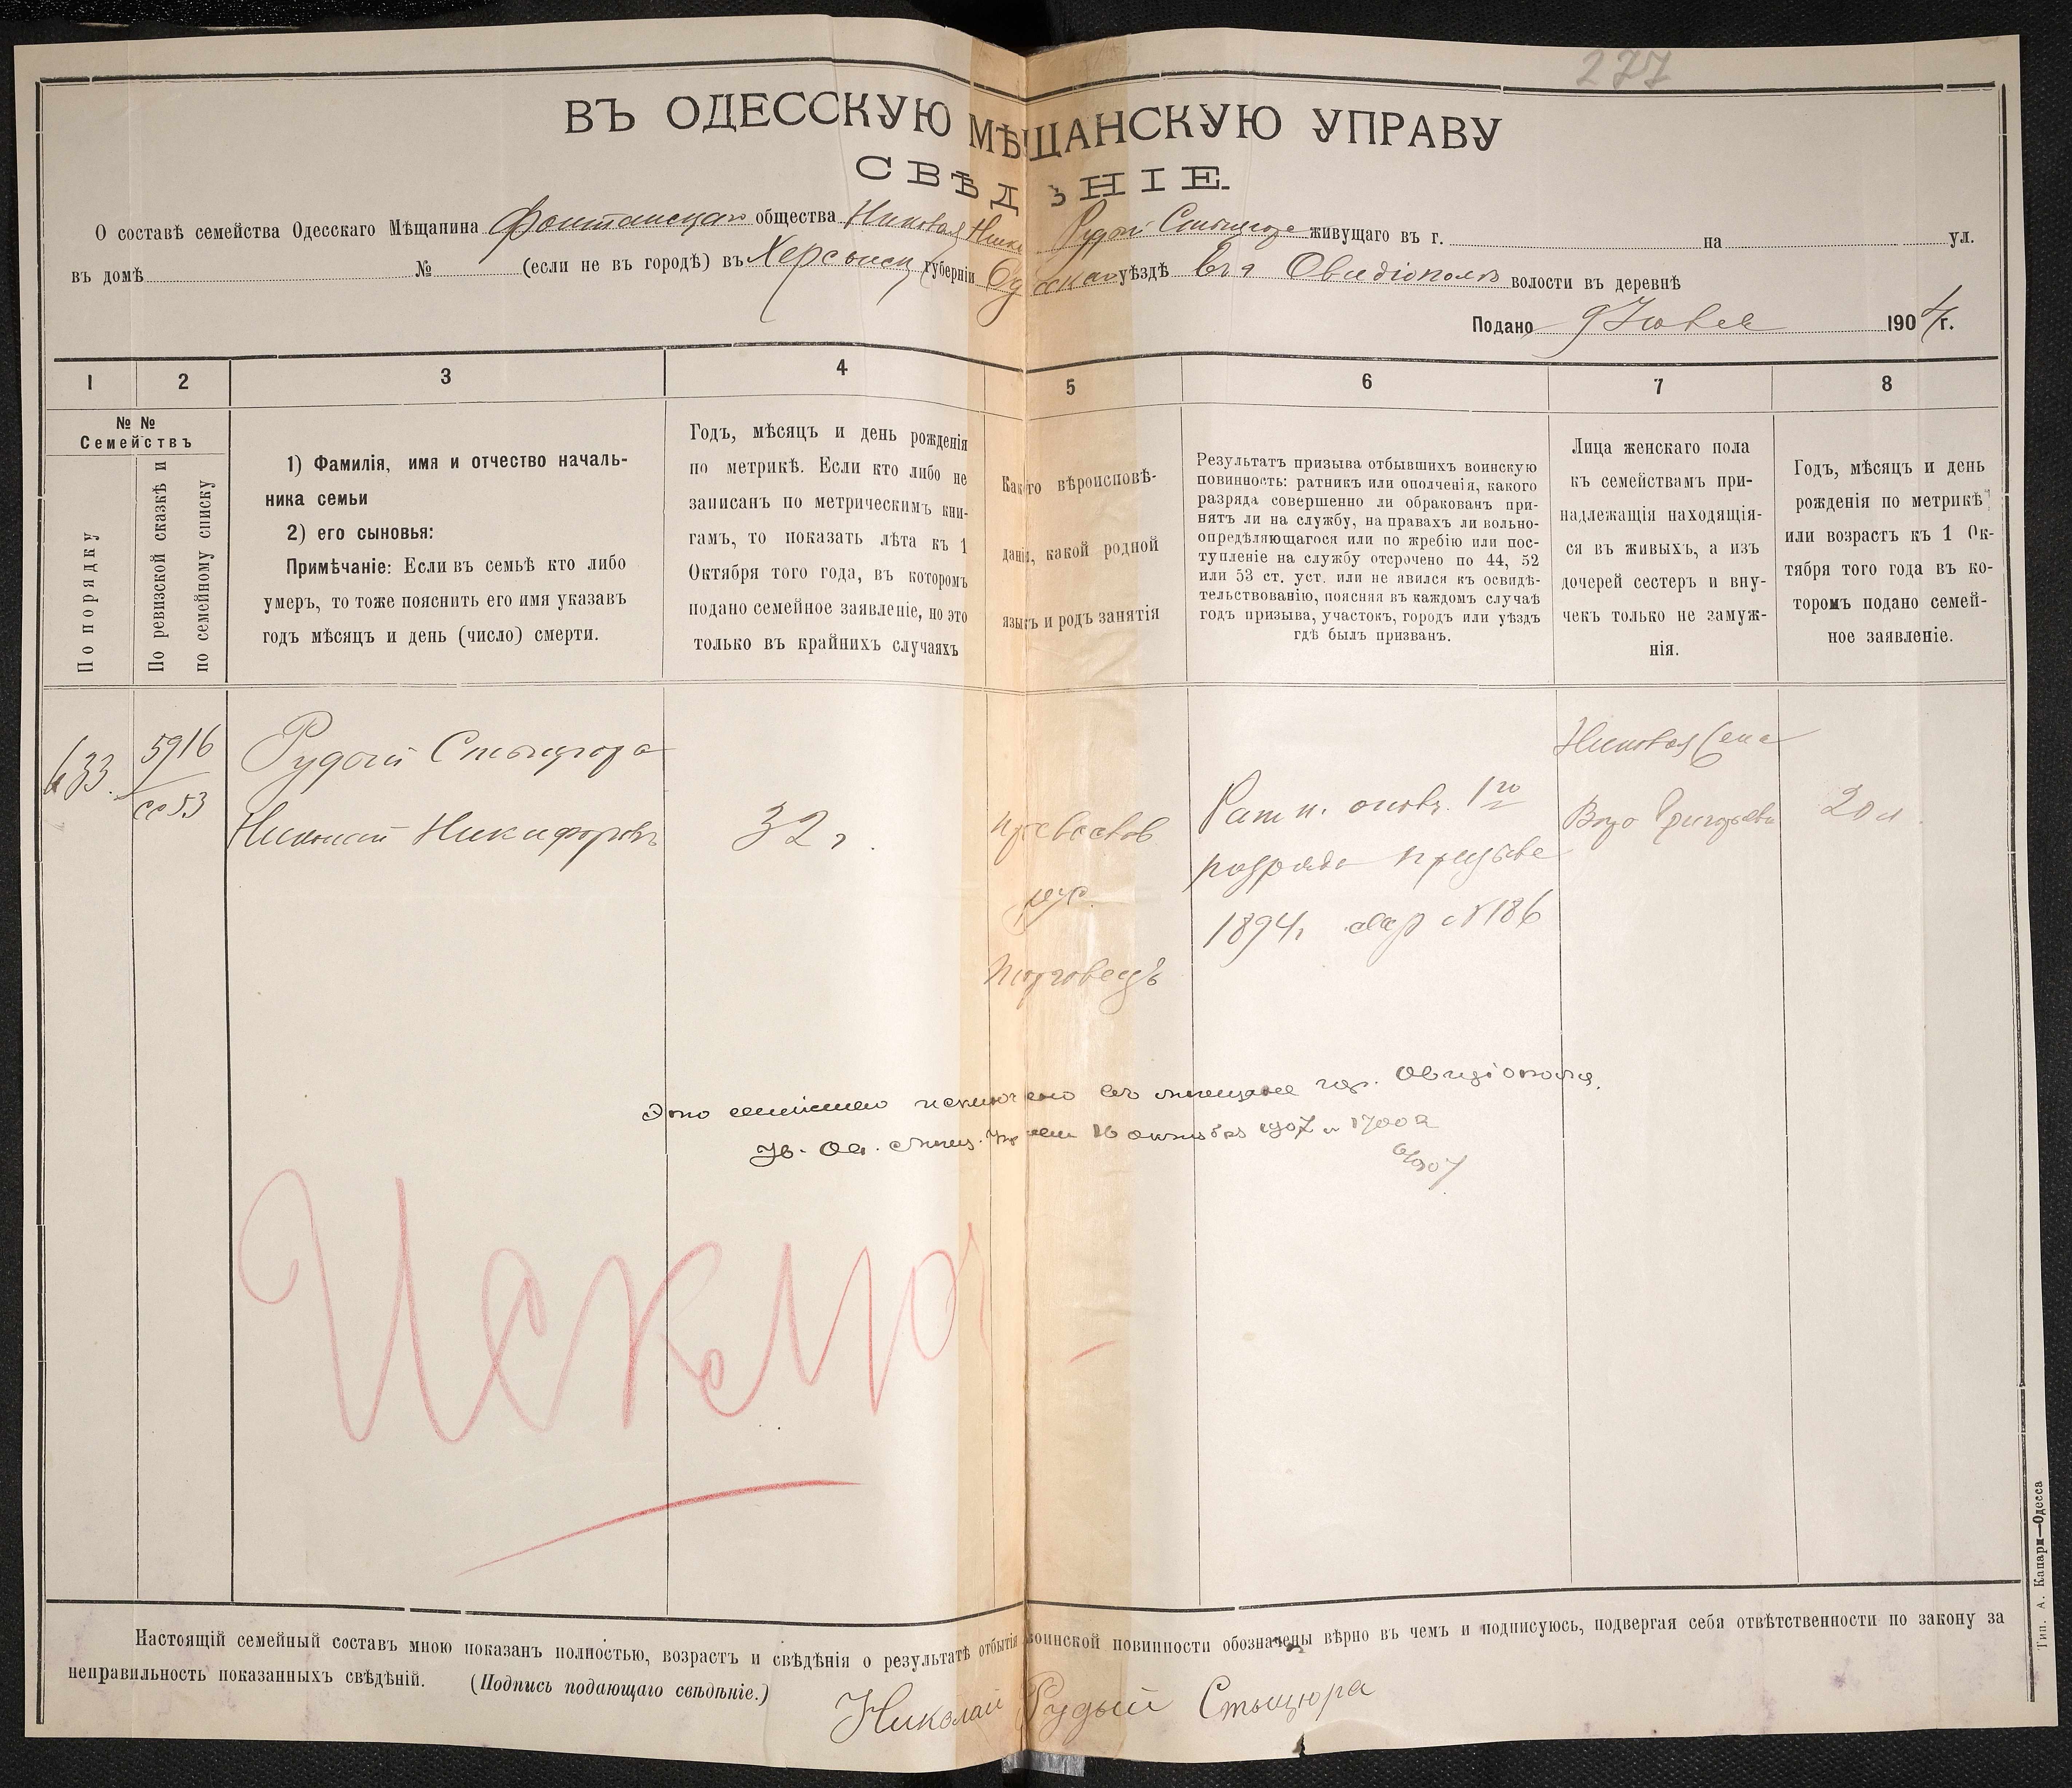 277
ВЪ ОДЕССКУЮ МѢЩАНСКУЮ УПРАВУ
СВѢДѢНІЕ.
О составѣ семейства Одесскаго Мѣщанина Фонтанскаго общества Николая Рудой Стыцюра живущаго въ г. на ул.
въ домѣ № (если не въ городѣ) въ Херсонск губерніи уѣздѣ Овидіополь волости въ деревнѣ
Подано 9 1904 г.
1 2 3 4 5 6 7 8
№ №
Семействъ
По порядку
По ревизской сказкѣ и
по семейному списку
1) Фамилія, имя и отчество началь-
ника семьи
2) его сыновья:
Примѣчаніе: Если въ семьѣ кто либо
умеръ, то тоже пояснить его имя указавъ
годъ мѣсяцъ и день (число) смерти.
Годъ, мѣсяцъ и день рожденія
по метрикѣ. Если кто либо не
записанъ по метрическимъ кни-
гамъ, то показать лѣта къ 1
Октября того года, въ которомъ
подано семейное заявленіе, но это
только въ крайнихъ случаяхъ
Какого вѣроисповѣ-
данія, какой родной
языкъ и родъ занятія
Результатъ призыва отбывшихъ воинскую
повинность: ратникъ или ополченія, какого
разряда совершенно ли обракованъ при-
нятъ ли на службу, на правахъ ли вольно-
опредѣляющагося или по жребію или пос-
тупленіе на службу отсрочено по 44, 52
или 53 ст. уст. или не явился къ освидѣ-
тельствованію, поясняя въ каждомъ случаѣ
годъ призыва, участокъ, городъ или уѣздъ
гдѣ былъ призванъ.
Лица женскаго пола
къ семействамъ при-
надлежащія находящія-
ся въ живыхъ, а изъ
дочерей сестеръ и вну-
чекъ только не замуж-
нія.
Годъ, мѣсяцъ и день
рожденія по метрикѣ
или возрастъ къ 1 Ок-
тября того года въ ко-
торомъ подано семей-
ное заявленіе.
633. 5916 Рудой Стыцюра
Николай Никифоровъ 32 г. православ
рус.
торговецъ
Ратн. ополч. 1го
разряда призыва
1894 г. №186
Николая жена
Григорьева 20 л.
Это семейство исключено въ мещане гор. Овидіополя.
Ув. Од. Мещ. Упр. 16 октября 1907 №
Исклю
Настоящій семейный составъ мною показанъ полностью, возрастъ и свѣдѣнія о результатѣ отбытія воинской повинности обозначены вѣрно въ чемъ и подписуюсь, подвергая себя отвѣтственности по закону за
неправильность показанныхъ свѣдѣній. (Подпись подающаго свѣдѣніе.)
Николай Рудый Стыцюра
Тип. А. Капари—Одесса